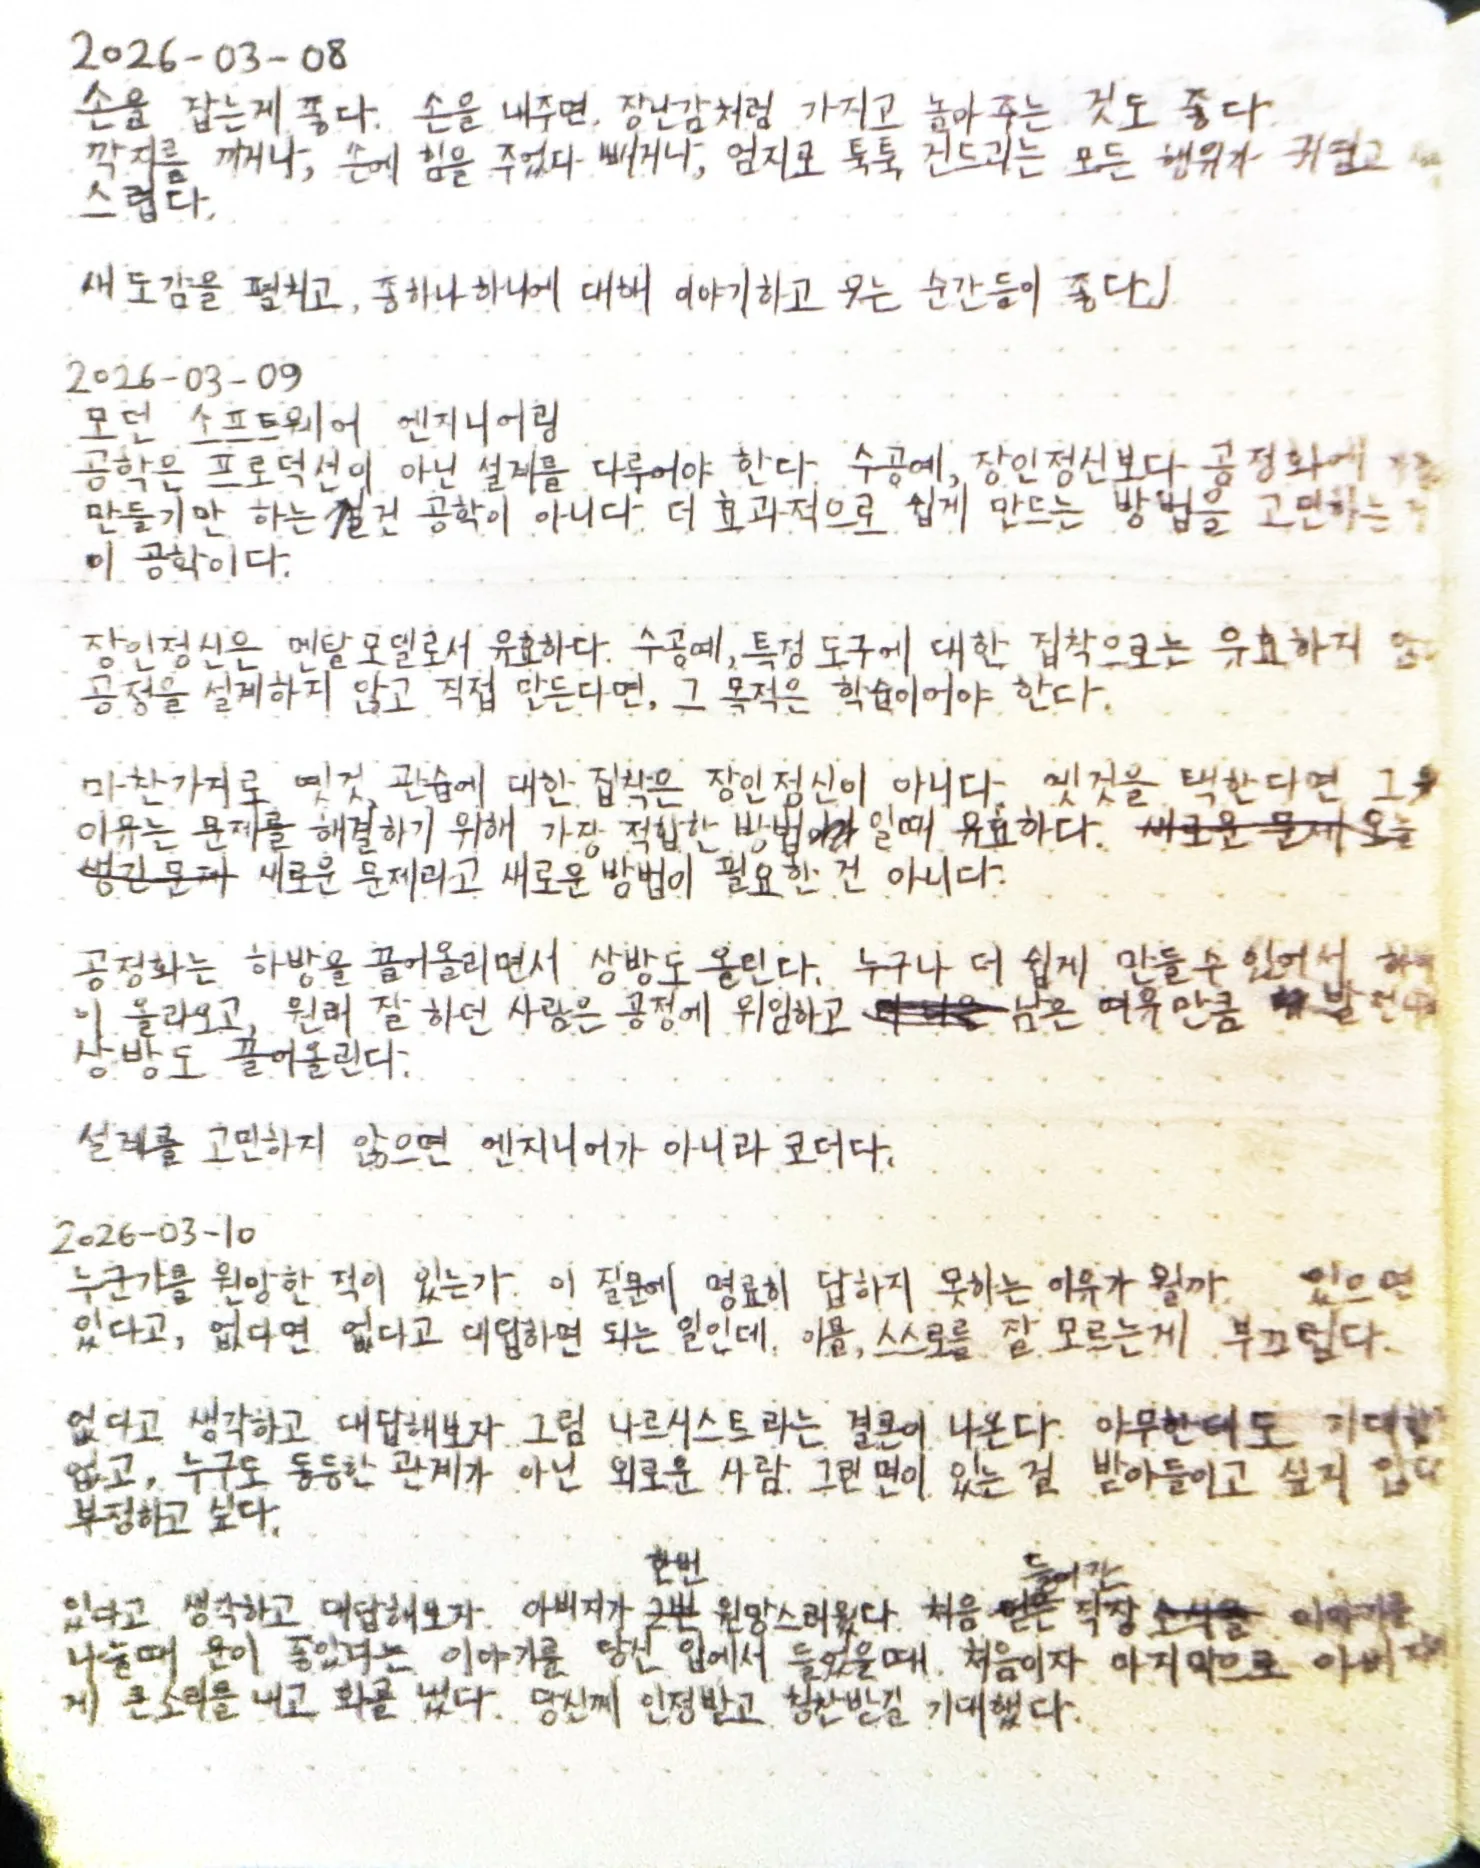 2026-03-08
손을 잡는게 좋다. 손을 내주면, 장난감처럼 가지고 놀아 주는 것도 좋다.
깍지를 끼거나, 손에 힘을 주었다 빼거나, 엄지로 툭툭 건드리는 모든 행위가 귀엽고
스럽다.
새 도감을 펼치고, 종하나하나에 대해 이야기하고 웃는 순간들이 좋다.
2026-03-09
모던 소프트웨어 엔지니어링
공학은 프로덕션이 아닌 설계를 다루어야 한다. 수공예, 장인정신보다 공정화에
만들기만 하는 건 공학이 아니다. 더 효과적으로 쉽게 만드는 방법을 고민하는
이 공학이다.
장인정신은 멘탈모델로서 유효하다. 수공예, 특정 도구에 대한 집착으로는 유효하지
공정을 설계하지 않고 직접 만든다면, 그 목적은 학습이어야 한다.
마찬가지로 옛것, 관습에 대한 집착은 장인정신이 아니다. 옛것을 택한다면 그
이유는 문제를 해결하기 위해 가장 적합한 방법 일때 유효하다. 새로운 문제 오늘
생긴 문제 새로운 문제라고 새로운 방법이 필요한 건 아니다.
공정화는 하방을 끌어올리면서 상방도 올린다. 누구나 더 쉽게 만들수 있어서
이 올라오고, 원래 잘 하던 사람은 공정에 위임하고 남은 여유만큼
상방도 끌어올린다.
설계를 고민하지 않으면 엔지니어가 아니라 코더다.
2026-03-10
누군가를 원망한 적이 있는가. 이 질문에 명료히 답하지 못하는 이유가 뭘까. 있으면
있다고, 없다면 없다고 대답하면 되는 일인데. 이몸, 스스로를 잘 모르는게 부끄럽다.
없다고 생각하고 대답해보자. 그럼 나르시스트라는 결론이 나온다. 아무한테도
없고, 누구도 동등한 관계가 아닌 외로운 사람. 그런 면이 있는 걸 받아들이고 싶지
부정하고 싶다.
한번 들어간
있다고 생각하고 대답해보자. 아버지가 원망스러웠다. 처음 얻은 직장 소식을 이야기를
나눌때 운이 좋았다는 이야기를 당신 입에서 들었을때. 처음이자 마지막으로
게 큰소리를 내고 화를 냈다. 당신께 인정받고 칭찬받길 기대했다.